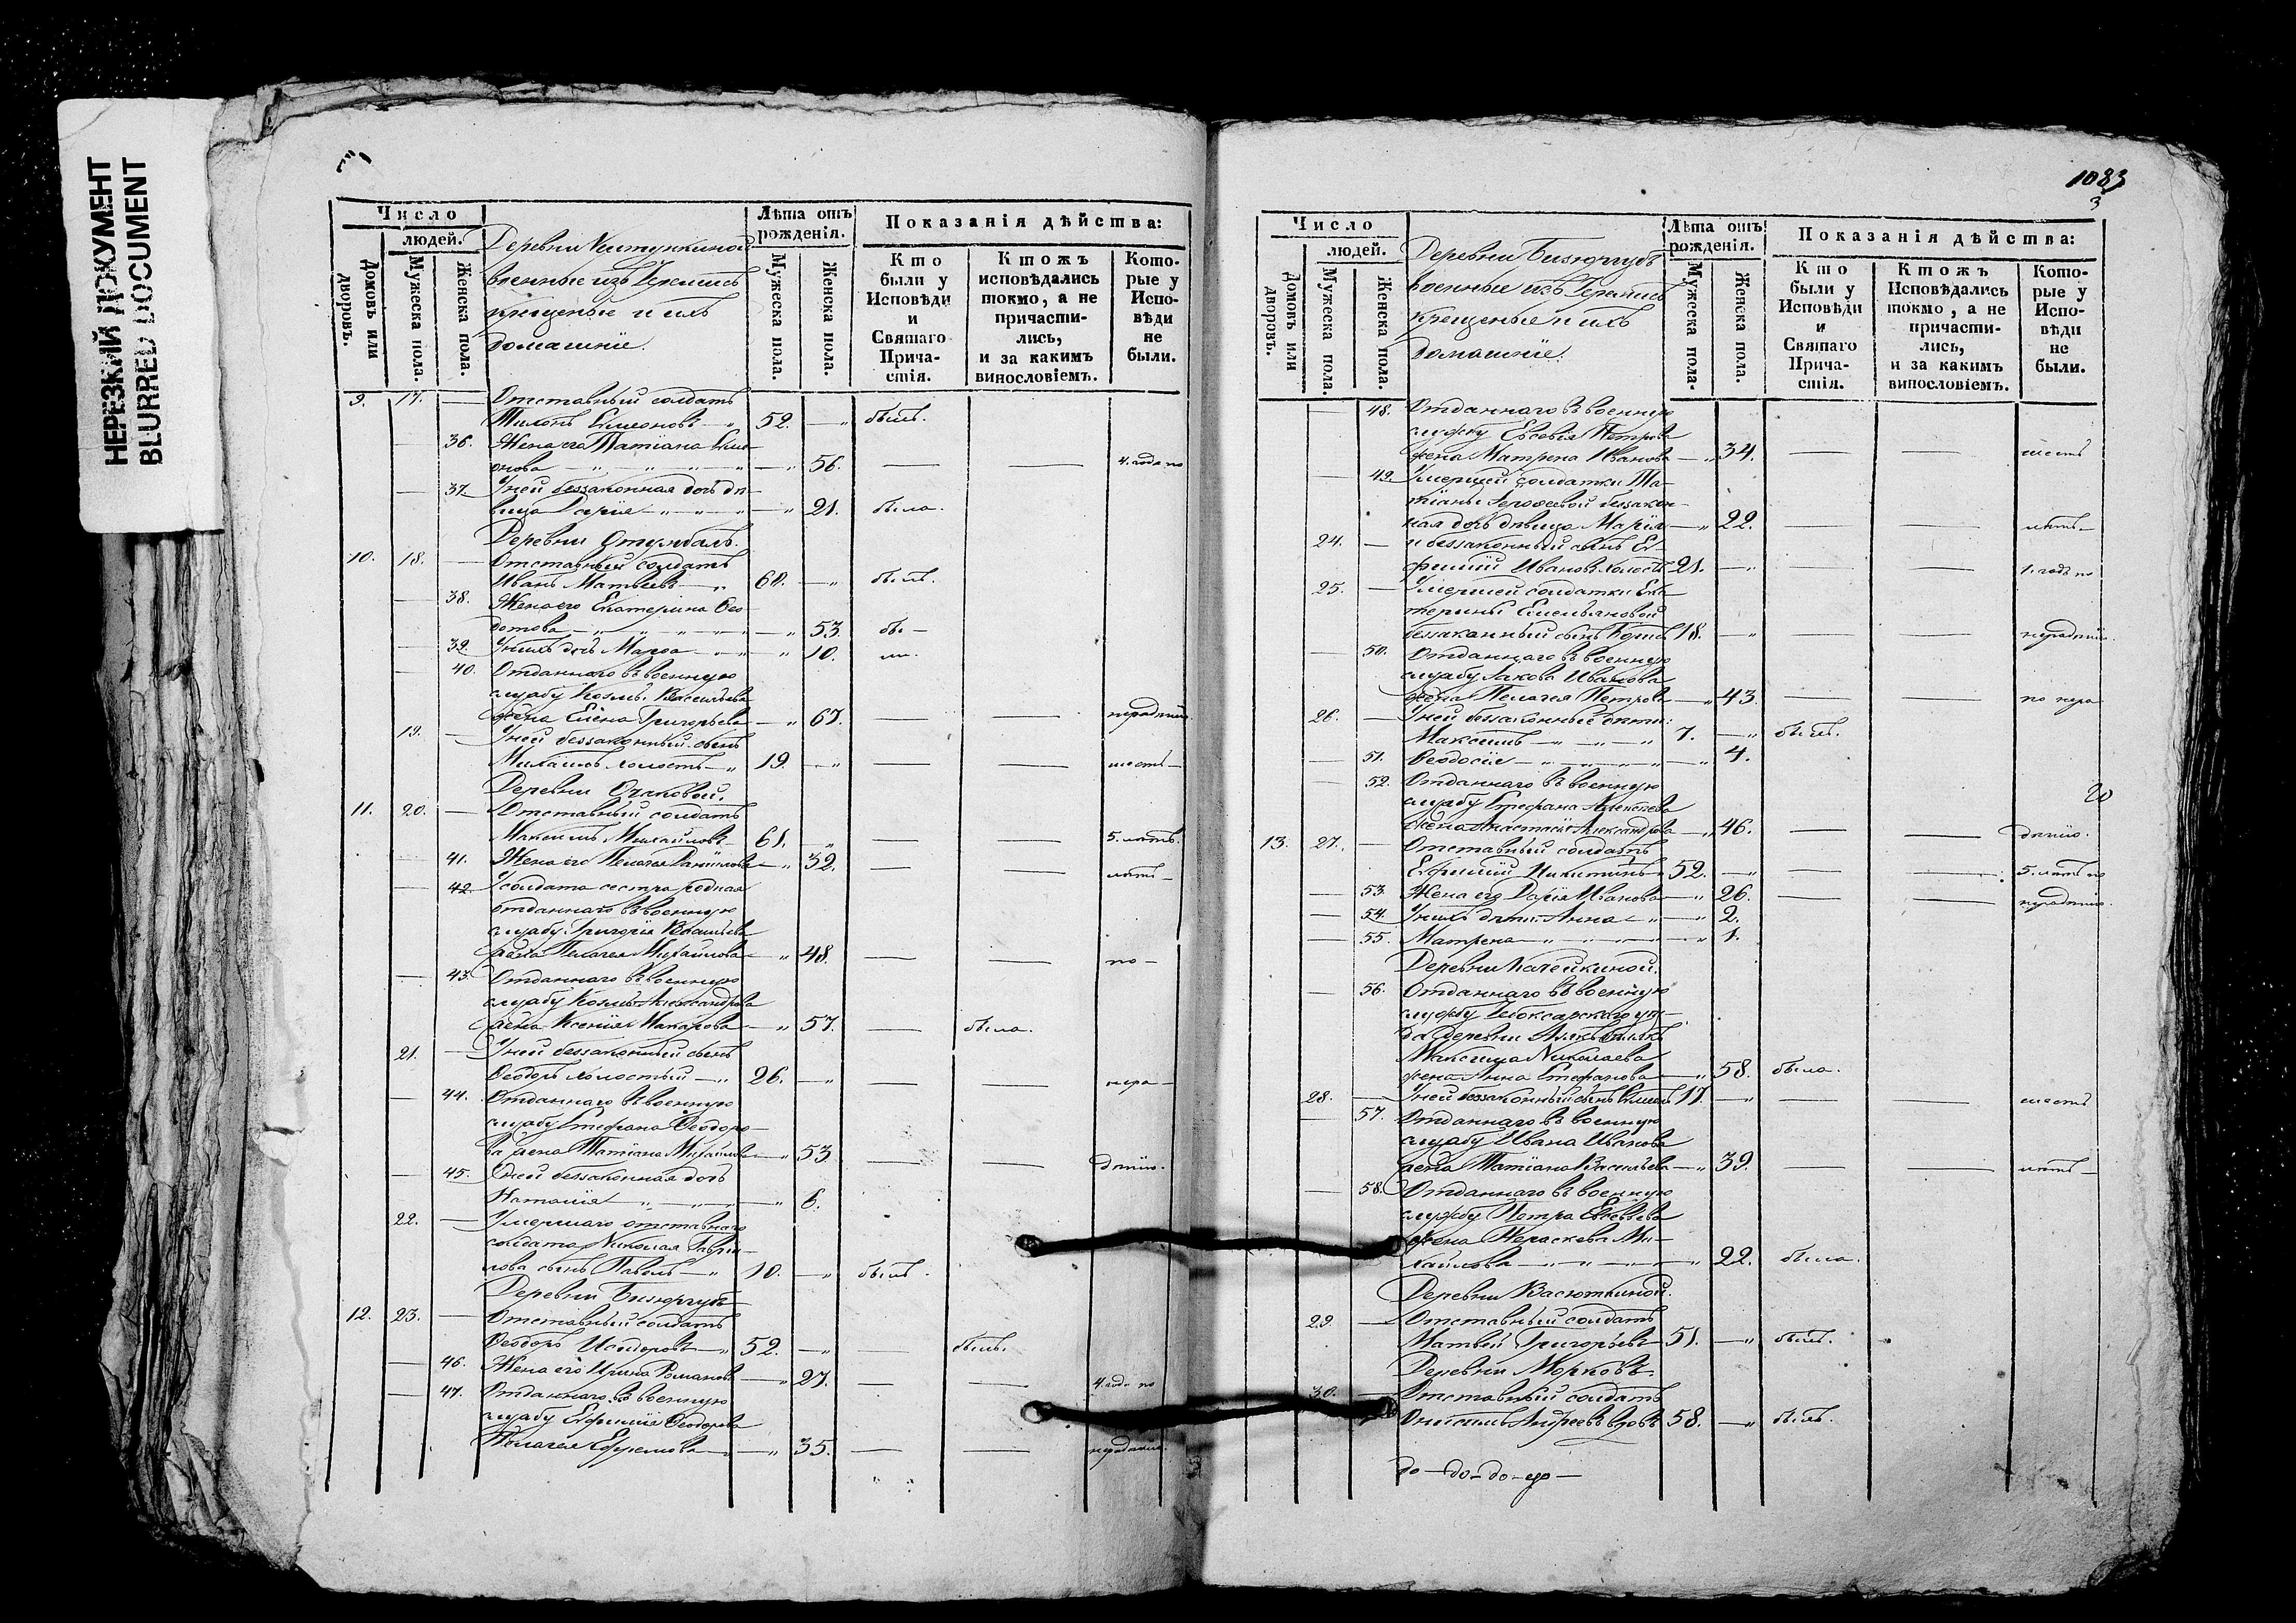 НЕРЕЗКИЙ ДОКУМЕНТ
BLURRED DOCUMENT
Число
людей.
Домовъ или дворовъ.
Мужеска пола.
Женска пола.
Деревни
военные изъ Черемисъ
крещеные и ихъ
домашніе.
Лѣта отъ рожденія.
Мужеска пола.
Женска пола.
Показанія дѣйства:
Кто были у Исповѣди и Святаго Причастія.
Ктожъ исповѣдались токмо, а не причастились, и за какимъ винословіемъ.
Которые у Исповѣди не были.
9. 17. — Отставный солдатъ
Тихонъ Симеоновъ — 52. — былъ.
36. Жена его Татіана Симе-
онова — 56. — — 4. года по
37. У ней беззаконная дочь дѣ-
вица Дарія — 21. была.
Деревни
10. 18. — Отставный солдатъ
Иванъ Матвѣевъ — 60. — былъ.
38. Жена его Екатерина Ѳео-
дотова — 53 бы —
39. У нихъ дочь Марѳа — 10. ли.
40. Отданнаго въ военную
службу Козмы Васильева
жена Елена Григорьева — 67. — — нерадѣнію.
19. — У ней беззаконный сынъ
Михаилъ холостъ — 19. — — —
Деревни Очаковой.
11. 20. — Отставный солдатъ
Максимъ Михайловъ 61. — — 5. лѣтъ.
41. Жена его Пелагея Даніилова — 32. — — лѣтъ —
42. У солдата сестра родная
отданнаго въ военную
службу Григорія Васильева
жена Пелагея Михайлова — 48. — — по —
43. Отданнаго въ военную
службу Козмы Александрова
жена Ксенія Макарова — 57. — была.
21. — У ней беззаконный сынъ
Ѳеодоръ холостый — 26. — — — нера —
44. Отданнаго въ военную
службу Стефана Ѳеодоро-
ва жена Татіана Михайлова — 53 — — дѣнію.
45. У ней беззаконная дочь
Наталія — 6.
22. — Умершаго отставнаго
солдата Николая Гаврі-
лова сынъ Павелъ — 10. — былъ.
Деревни Бизюргубъ
12. 23. — Отставный солдатъ
Ѳеодоръ Исидоровъ — 52. — — былъ.
46. Жена его Ирина Романова — 27. — — 4. года по
47. Отданнаго въ военную
службу Евфимія Ѳеодорова
Пелагея Ефремова — 35. — — нерадѣнію.
1083
3
Число
людей.
Домовъ или дворовъ.
Мужеска пола.
Женска пола.
Деревни Бизюргубъ
военные изъ Черемисъ
крещеные и ихъ
домашніе.
Лѣта отъ рожденія.
Мужеска пола.
Женска пола.
Показанія дѣйства:
Кто были у Исповѣди и Святаго Причастія.
Ктожъ Исповѣдались токмо, а не причастились, и за какимъ винословіемъ.
Которые у Исповѣди не были.
48. Отданнаго въ военную
службу Евсевія Петрова
жена Матрена Иванова — 34. — — шесть
49. Умершей солдатки Та-
тіаны беззакон-
ная дочь дѣвица Марія — 22. — — лѣтъ —
24. — и беззаконный сынъ Ев-
фимій Ивановъ холостъ 21. — — — 1. годъ по
25. — Умершей солдатки Ека-
терины Емельяновой
беззаконный сынъ 18. — — — нерадѣнію.
50. Отданнаго въ военную
службу Іакова Иванова
жена Пелагея Петрова — 43. — — по нера
26. — У ней беззаконные дѣти:
Максимъ — 7. — былъ.
51. Ѳеодосія — 4.
52. Отданнаго въ военную
службу Стефана Алексѣева
жена Анастасія Александрова — 46. — — дѣнію.
20
13. 27. — Отставный солдатъ
Евфимій Никитинъ 52. — — — 5. лѣтъ по
53. Жена его Дарія Иванова — 26. — — нерадѣнію.
54. У нихъ дѣти: Анна — 2.
55. Матрена — 1.
Деревни
56. Отданнаго въ военную
службу Чебоксарскаго уѣз-
да деревни
Максима Николаева
жена Анна Стефанова — 58. была.
28. — У ней беззаконный сынъ 17. — — — шесть
57. Отданнаго въ военную
службу Ивана Иванова
жена Татіана Васильева — 39. — — лѣтъ —
58. Отданнаго въ военную
службу Петра Евсевьева
жена Параскева Ми-
хайлова — 22. была.
Деревни Васюткиной.
29. — Отставный солдатъ
Матвей Григорьевъ 51. — былъ.
Деревни
30. — Отставный солдатъ
Онисимъ Андреевъ вдовъ 58. — былъ.
до — до — до —